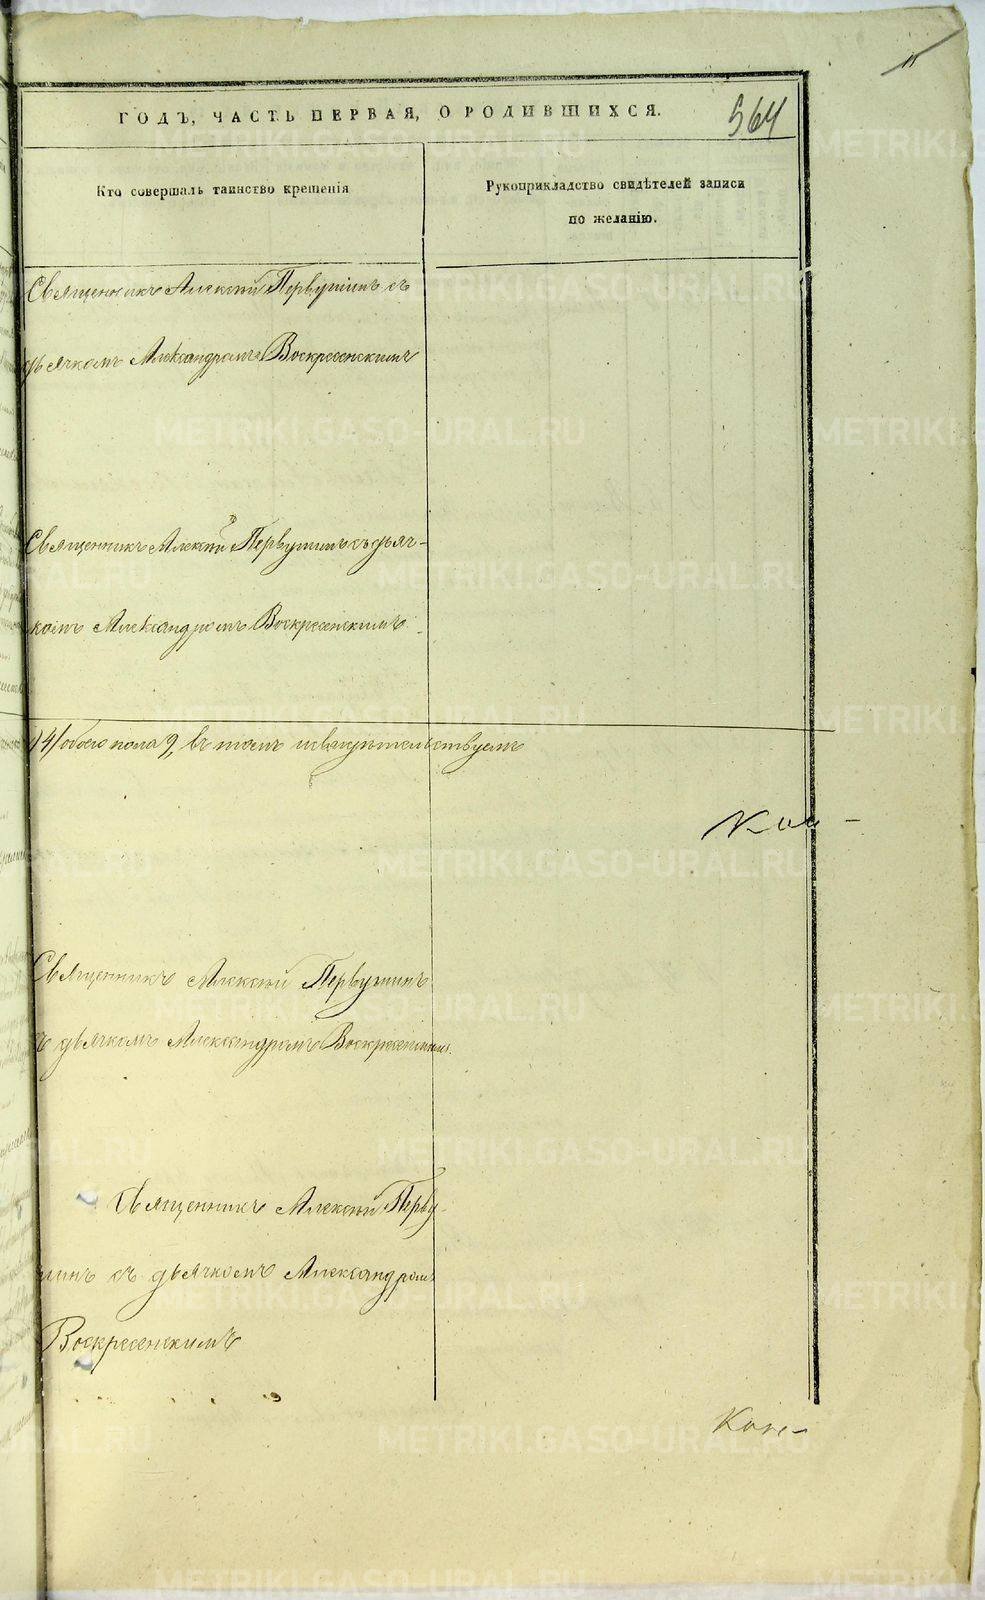 ГОДЪ, ЧАСТЬ ПЕРВАЯ, О РОДИВШИХСЯ.
564
Кто совершалъ таинство крещенія
Рукоприкладство свидѣтелей записи
по желанію.
Священникъ Алексій Первушинъ съ
дьячкомъ Александромъ Воскресенскимъ
Священникъ Алексій Первушинъ съ дьяч-
комъ Александромъ Воскресенскимъ
4/ обоего пола 9, въ томъ и свидѣтельствуемъ
Священникъ Алексій Первушинъ
съ дьячкомъ Александромъ Воскресенскимъ.
Священникъ Алексій Перву-
шинъ съ дьячкомъ Александромъ
Воскресенскимъ
METRIKI.GASO-URAL.RU